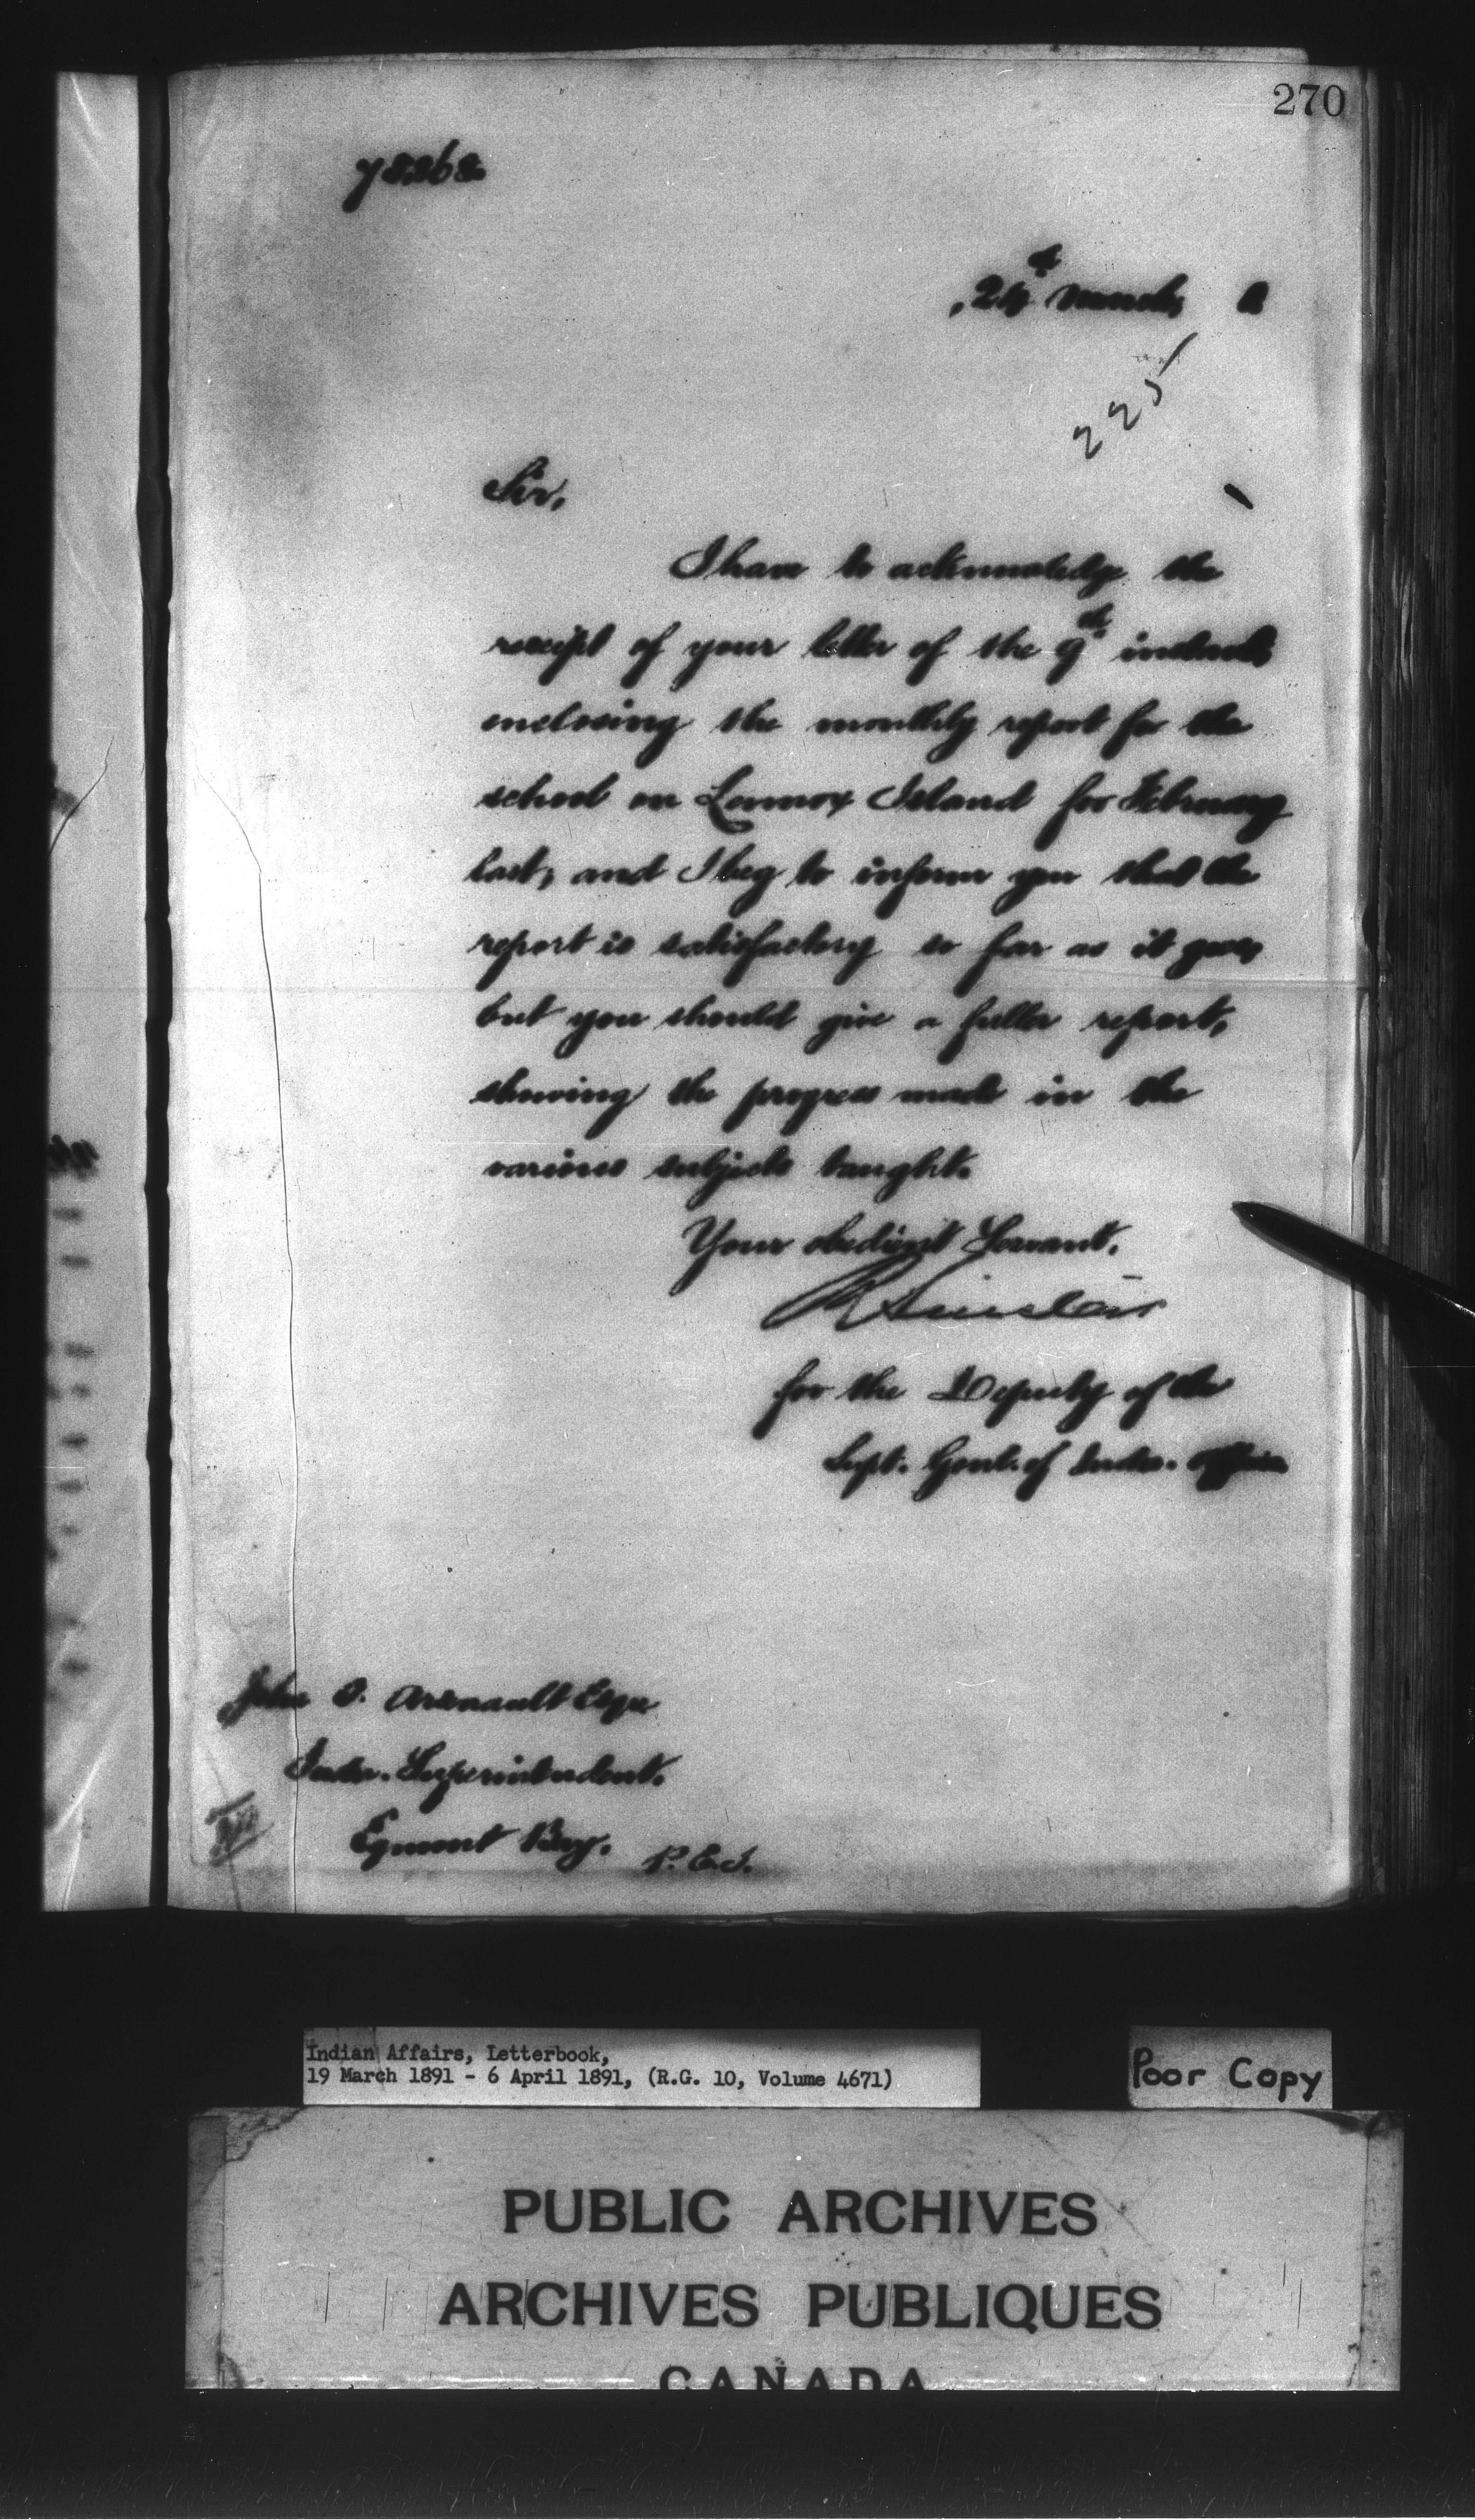 270
24th March
225
Sir,
I have to acknowledge the
receipt of your letter of the 9th instant,
enclosing the monthly report for the
school on Lennox Island for February
last, and I beg to inform you that the
report is satisfactory so far as it goes
but you should give a fuller report,
shewing the progress made in the
various subjects taught.
Your obedient Servant.
R Sinclair
for the Deputy of the
Supt. Genl. of Indn. Affairs
John O. Arsenault Esqre
Indn. Superintendent.
Egmont Bay. P.E.I.
Indian Affairs, Letterbook,
19 March 1891 - 6 April 1891, (R.G. 10, Volume 4671)
Poor Copy
PUBLIC ARCHIVES
ARCHIVES PUBLIQUES
CANADA